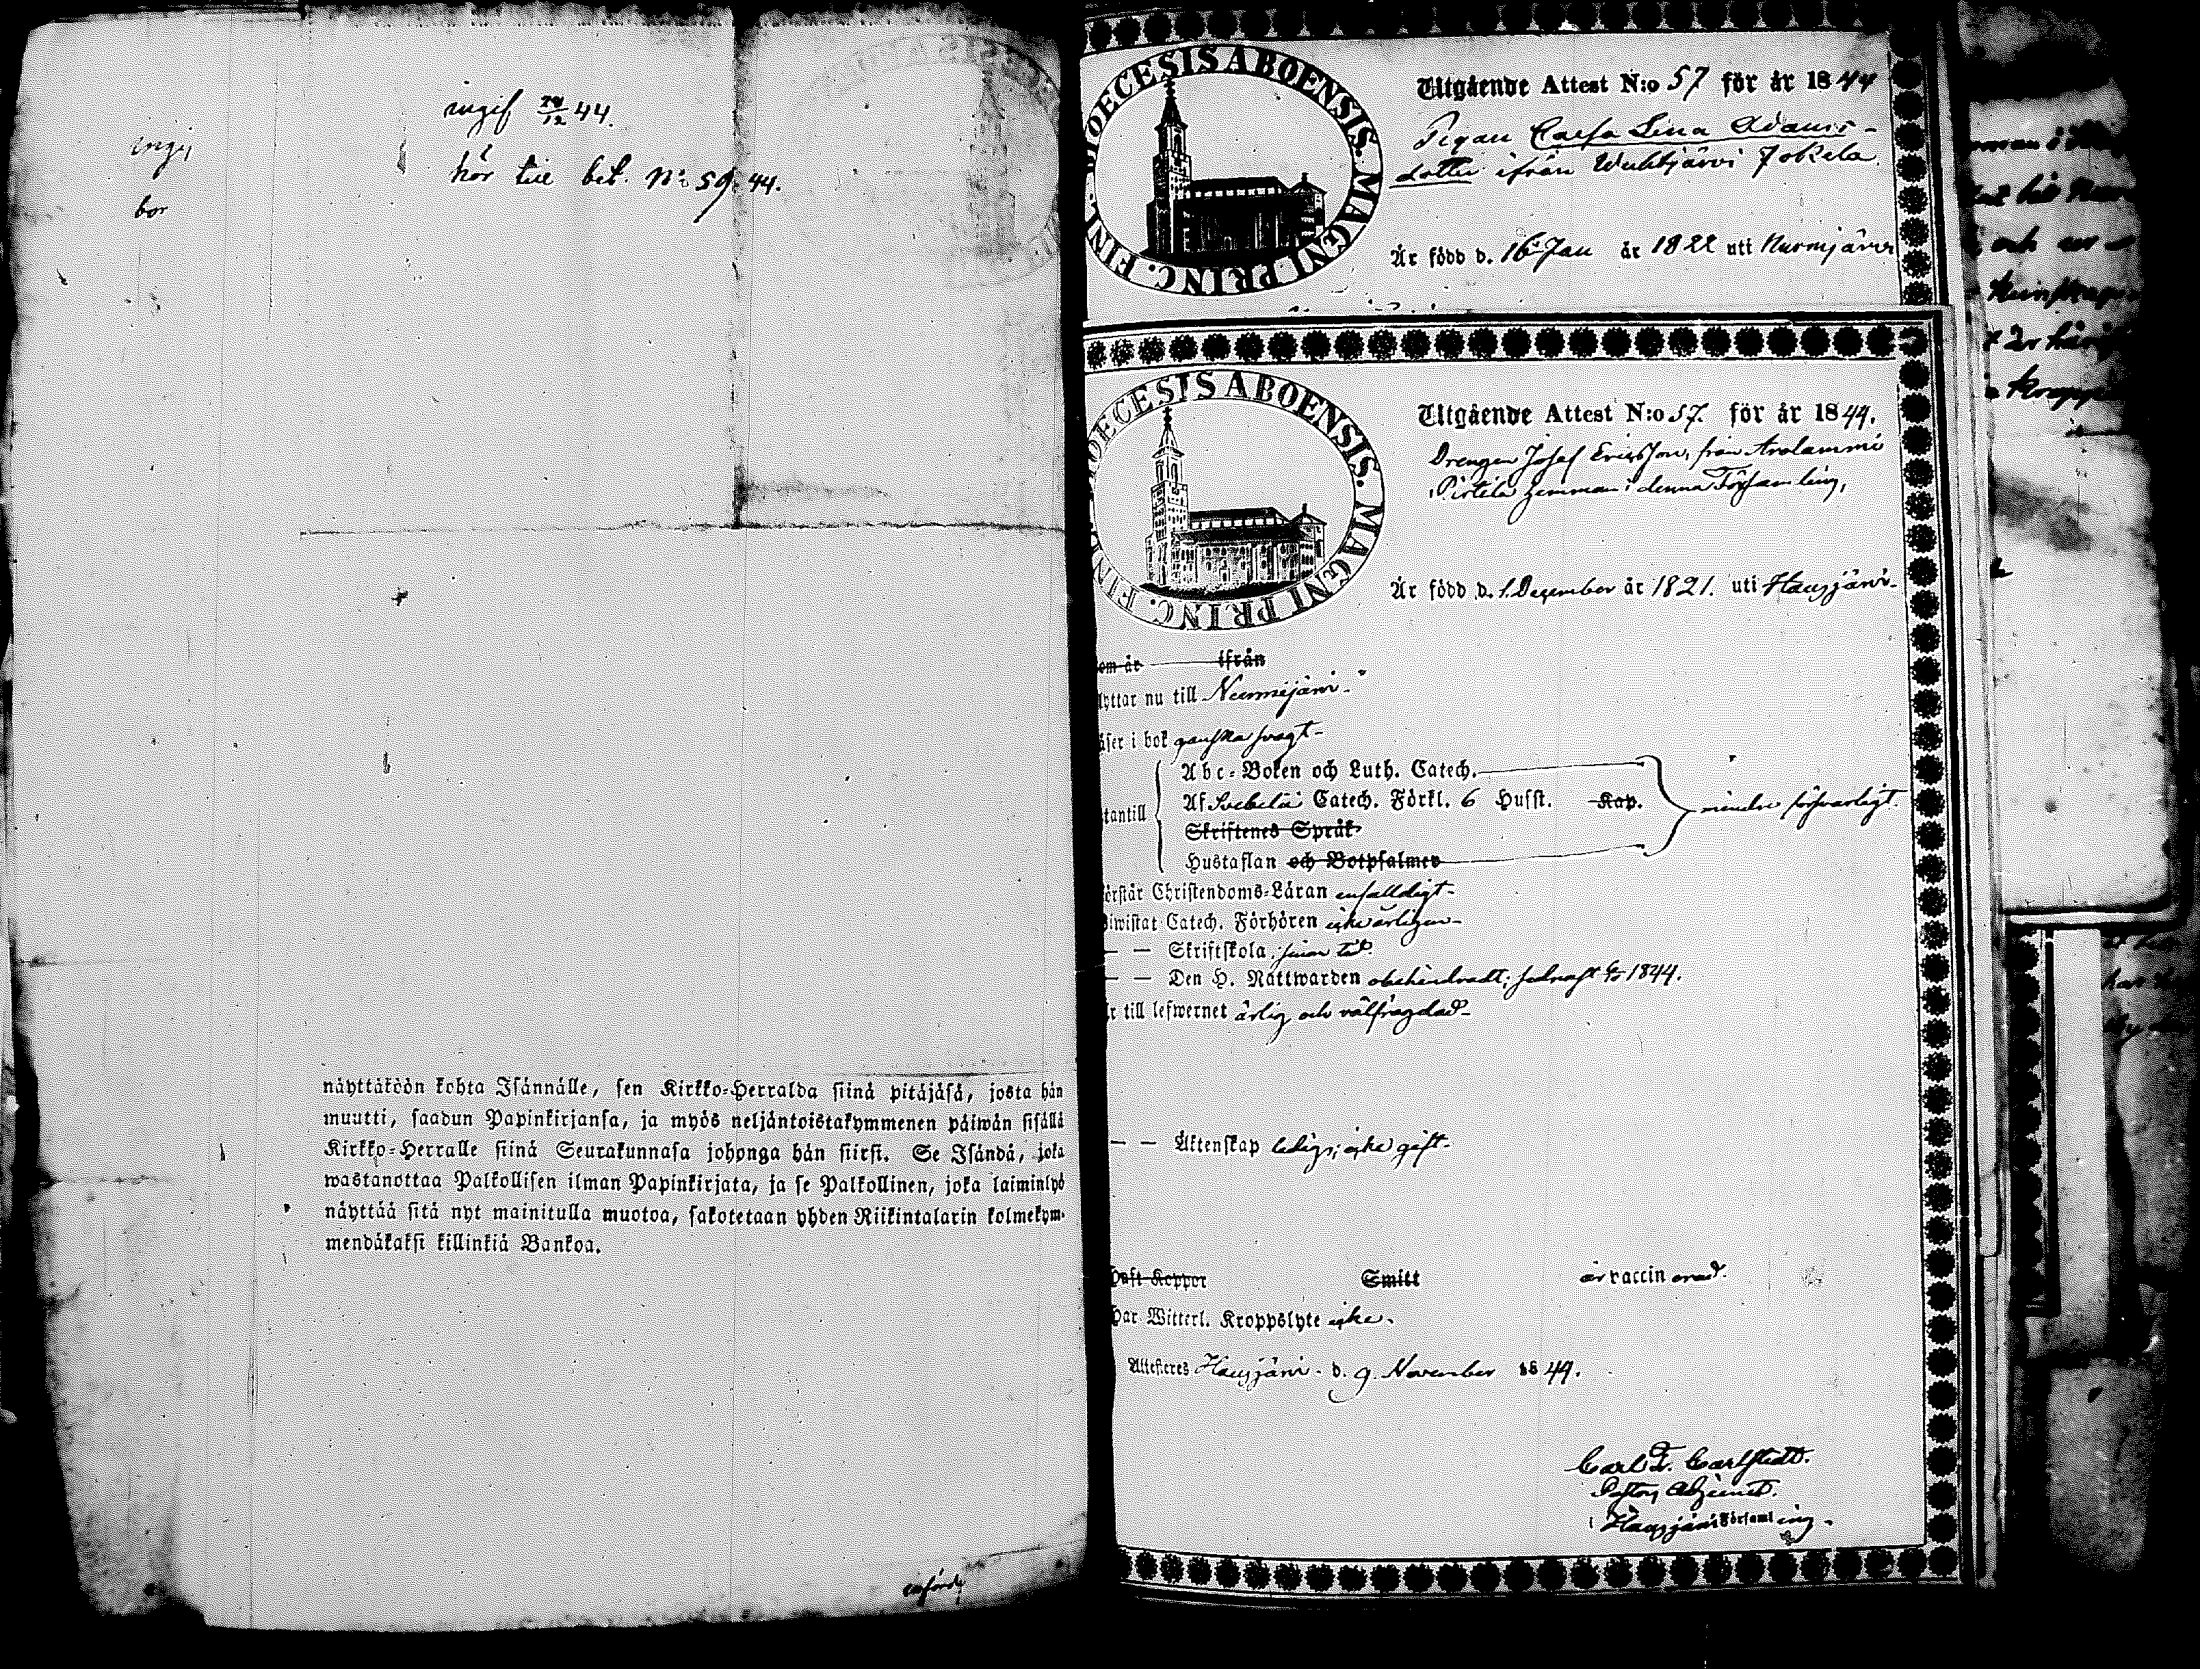 ingif 24/12 44.
hör till bet. No 59. 44.
ingi
bor
näyttäköön kohta Isännälle, sen Kirkko-Herralda siinä pitäjäsä, josta hän
muutti, saadun Papinkirjansa, ja myös neljäntoistakymmenen päiwän sisällä
Kirkko-Herralle siinä Seurakunnasa johonga hän siirsi. Se Isändä, joka
wastanottaa Palkollisen ilman Papinkirjata, ja se Palkollinen, joka laiminlyö
näyttää sitä nyt mainitulla muotoa, sakotetaan yhden Riikintalarin kolmekym-
mendäkaksi killinkiä Bankoa.
DIOECESIS ABOENSIS. MAGNI PRINC. FINL.
Utgående Attest N:o 57 för år 1844
Pigan Caisa Lena Adams-
dotter ifrån Wuhtjärvi Jokela
Är född d. 16 Jan år 1822 uti Nurmjärvi
DIOECESIS ABOENSIS. MAGNI PRINC. FIN
Utgående Attest N:o 57. för år 1844.
Drengen Josef Ericsson, från Arolammi
Pirtilä hemman i denna Församling,
Är född d. 1. December år 1821. uti Hausjärvi-
om år ifrån
lyttar nu till Nurmijärvi-
äser i bok ganska svagt-
tantill
Abc-Boken och Luth. Catech.
Af Svebelii Catech. Förkl. 6 Hufst. Kap.
Skriftenes Språk
Hustaflan och Botpsalmer
mindre försvarligt.
örstår Christendoms-Läran enfalldigt-
iwistat Catech. Förhören icke årligen-
— — Skriftskola, sinom tid.
— — Den H. Nattwarden obehindradt; sednast 1844.
r till lefwernet ärlig och välfrägdad-
— — Äktenskap ledig; icke gift-
Haft Koppor Smitt är vaccinerad.
Har Witterl. Kroppslyte icke.
Attesteres Hausjärvi- d. 9. November 1844.
Carl F. Carlstedt.
Pastors Adjunct.
i Hausjärvi Församling-
införd